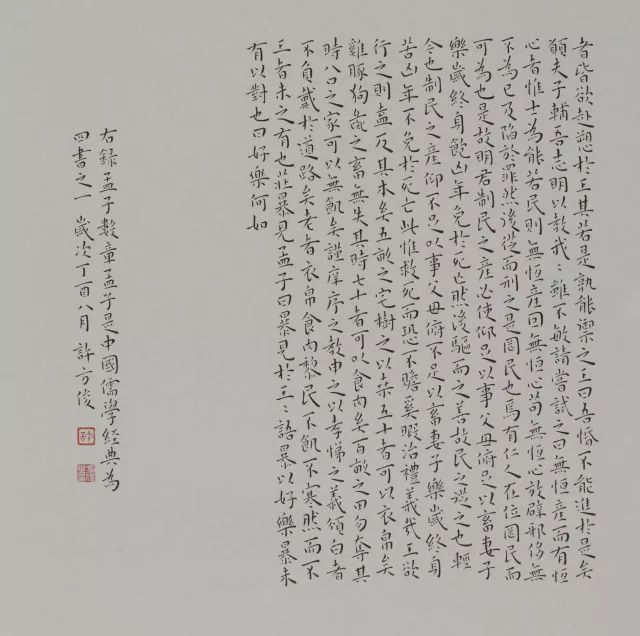 者皆欲赴愬於王其若是孰能禦之王曰吾惛不能進於是矣
願夫子輔吾志明以教我〻雖不敏請嘗試之曰無恆產而有恆
心者惟士為能若民則無恆產因無恆心苟無恆心放辟邪侈無
不為已及陷於罪然後從而刑之是罔民也焉有仁人在位罔民而
可為也是故明君制民之產必使仰足以事父母俯足以畜妻子
樂歲終身飽凶年免於死亡然後驅而之善故民之從之也輕
今也制民之產仰不足以事父母俯不足以畜妻子樂歲終身
苦凶年不免於死亡此惟救死而恐不贍奚暇治禮義哉王欲
行之則盍反其本矣五畝之宅樹之以桑五十者可以衣帛矣
雞豚狗彘之畜無失其時七十者可以食肉矣百畝之田勿奪其
時八口之家可以無飢矣謹庠序之教申之以孝悌之義頒白者
不負戴於道路矣老者衣帛食肉黎民不飢不寒然而不
王者未之有也莊暴見孟子曰暴見於王〻語暴以好樂暴未
有以對也曰好樂何如
右錄孟子數章孟子是中國儒學經典為
四書之一歲次丁酉八月許方俊